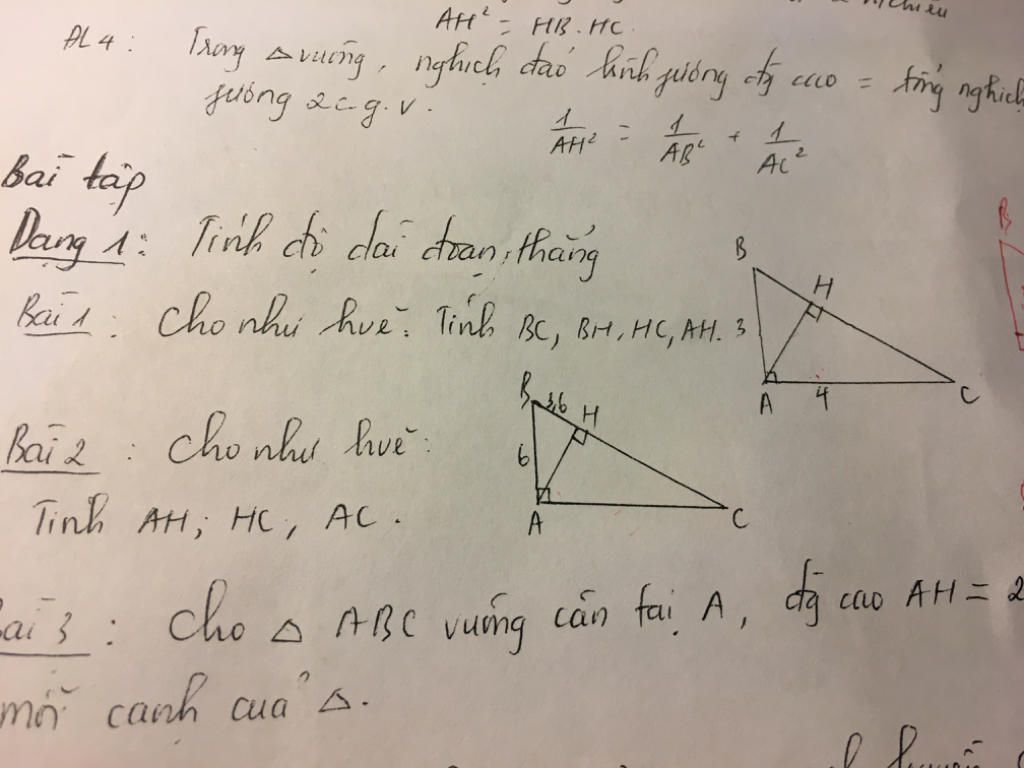 AH² = HB.HC.
ĐL 4 : Trong △ vuông, nghịch đảo bình phương đg cao = tổng nghịch
phương 2 c.g.v.
1/AH² = 1/AB² + 1/AC²
Bài tập
Dạng 1: Tính độ dài đoạn thẳng
Bài 1 : Cho như hvẽ: Tính BC, BH, HC, AH.
B
H
3
A
4
C
B
Bài 2 : Cho như hvẽ:
B
3,6
H
6
A
C
Tính AH; HC, AC.
Bài 3 : Cho △ ABC vuông cân tại A, đg cao AH = 2
mỗi cạnh của △.